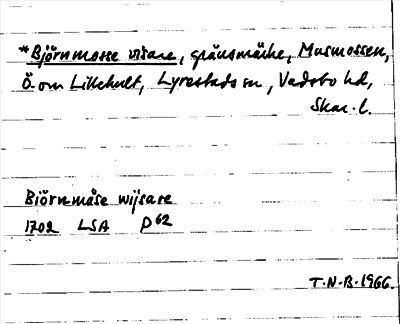 *Björnmosse visare, gränsmärke, Musmossen,
Ö. om Lillehult, Lyrestads sn, Vadsbo hd,
Skar. l.
Biörnmåse wijsare
1702 LSA P62
T.N.B. 1966.